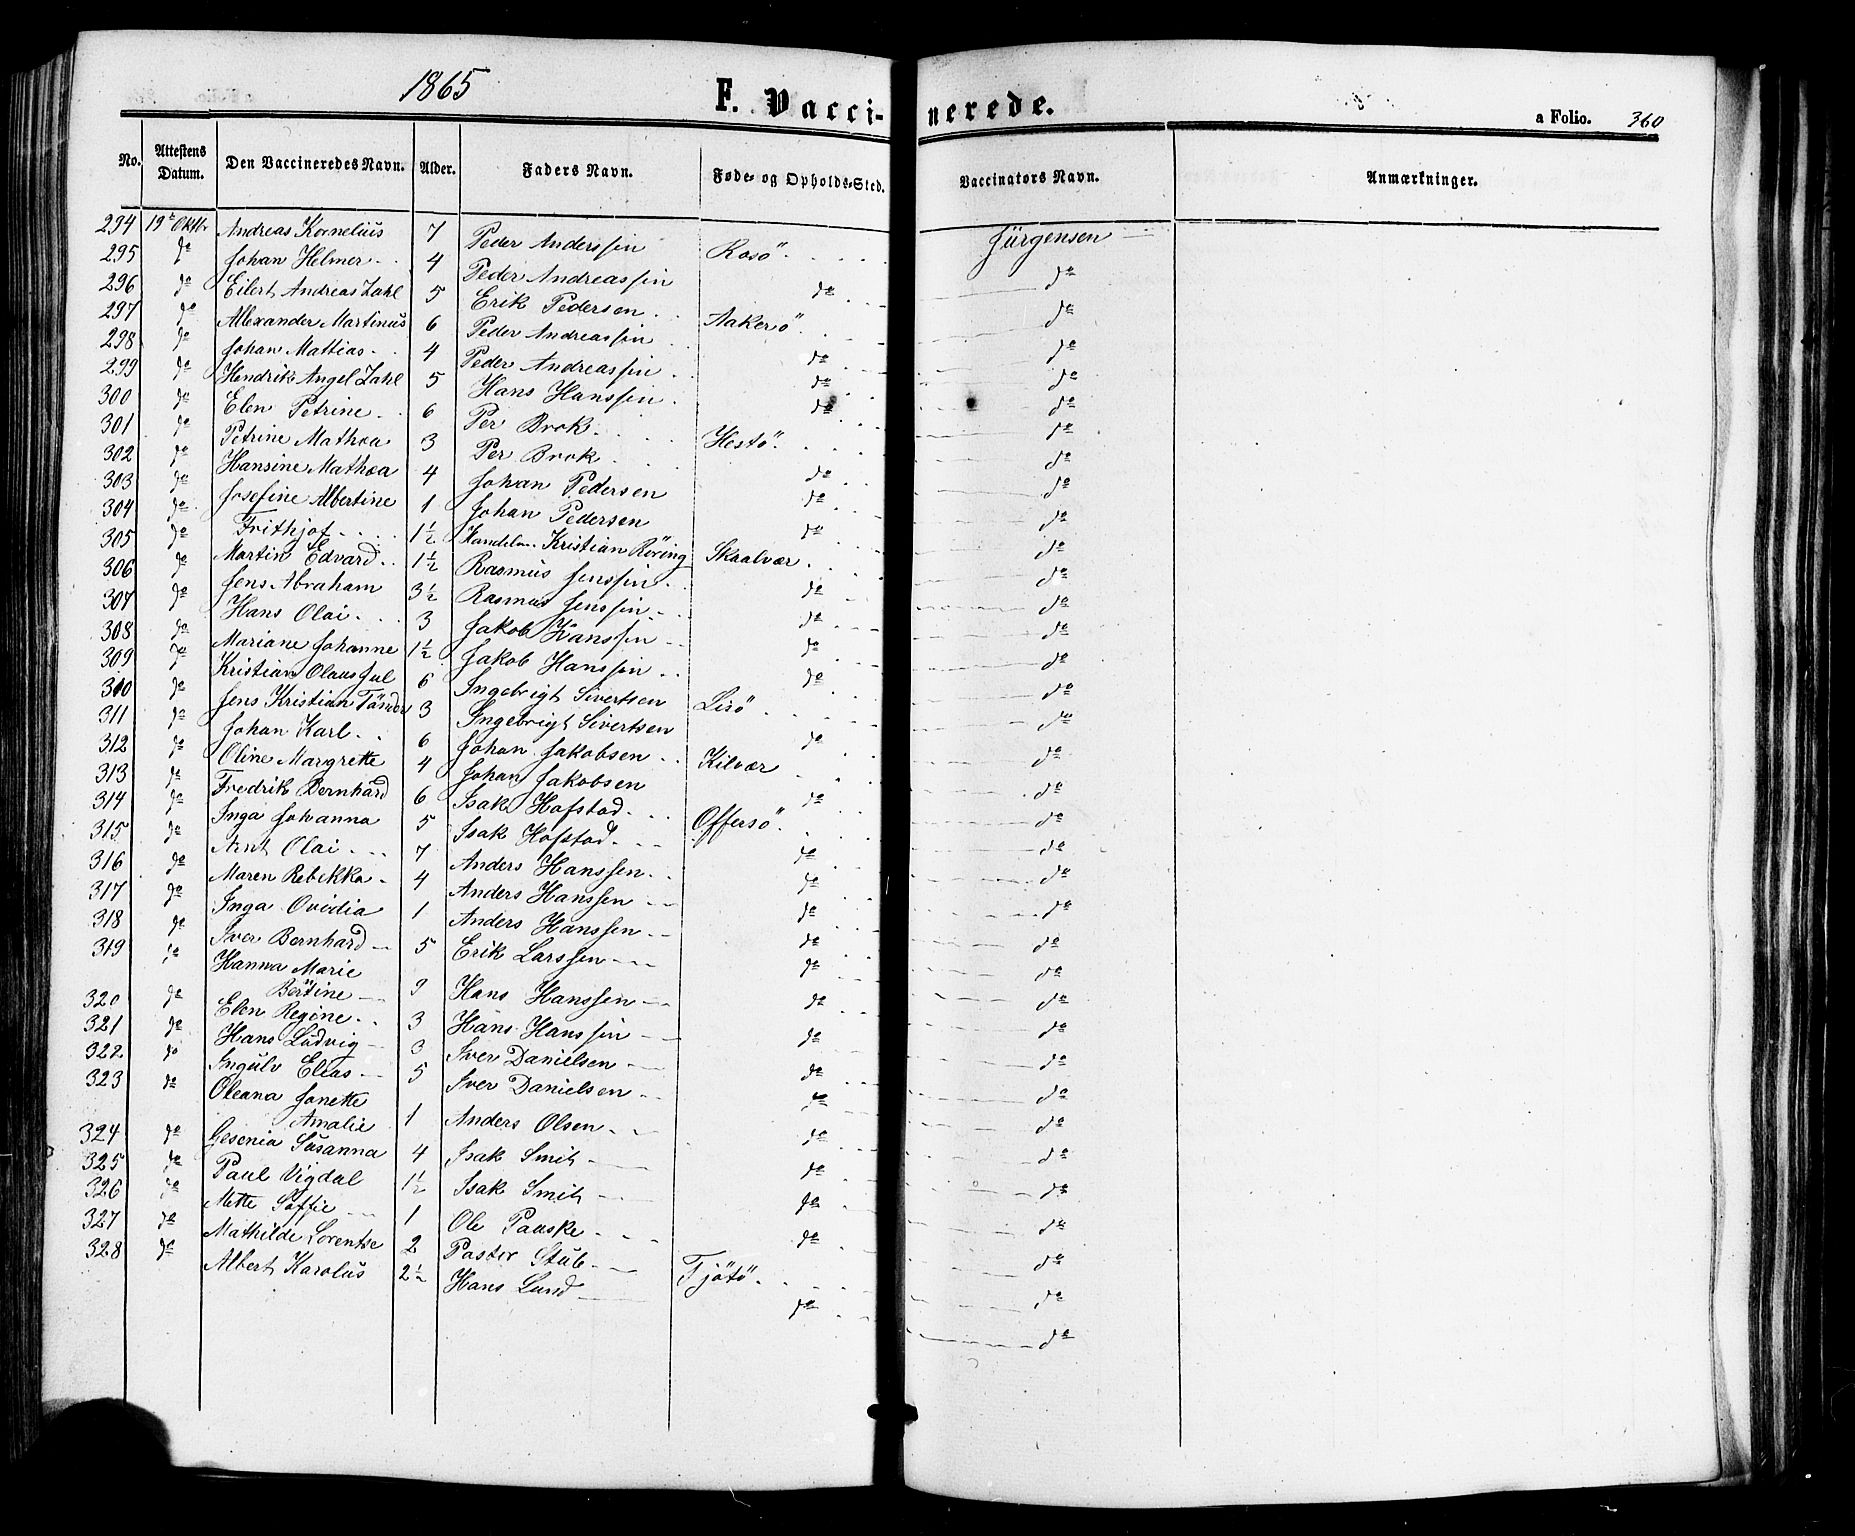 1865
F. Vaccinerede.
a Folio. 360
No. Attestens Datum. Den Vaccineredes Navn. Alder. Faders Navn. Føde- og Opholds-Sted. Vaccinators Navn. Anmærkninger.
294 19de Oktbr Andreas Kornelius 7 Peder Anderssen Rosö Jürgensen
295 do Johan Helmer 4 Peder Andreassen do do
296 do Eilert Andreas Zahl 5 Erik Pedersen Aakerö do
297 do Allexander Martinus 6 Peder Andreassen do do
298 do Johan Mattias 4 Peder Andreassen do do
299 do Hendrik Angel Zahl 5 Hans Hanssen do do
300 do Elen Petrine 6 Per Brok Hestö do
301 do Petrine Mathea 3 Per Brok do do
302 do Hansine Mathea 4 Johan Pedersen do do
303 do Josefine Albertine 1 Johan Pedersen do do
304 do Frithjof 1½ Handelsm. Kristian Röring Skaalvær do
305 do Martin Edvard 1½ Rasmus Jenssen do do
306 do Jens Abraham 3½ Rasmus Jenssen do do
307 do Hans Olai 3 Jakob Hanssen do do
308 do Mariane Johanne 1½ Jakob Hanssen do do
309 do Kristian Olaus Jul 6 Ingebrigt Sivertsen Lirö do
310 do Jens Kristian 3 Ingebrigt Sivertsen do do
311 do Johan Karl 6 Johan Jakobsen Kilvær do
312 do Oline Margrette 4 Johan Jakobsen do do
313 do Fredrik Bernhard 6 Isak Hofstad Offersö do
314 do Inga Johanna 5 Isak Hofstad do do
315 do Arnt Olai 7 Anders Hanssen do do
316 do Maren Rebekka 4 Anders Hanssen do do
317 do Inga Ovidia 1 Anders Hanssen do do
318 do Iver Bernhard 5 Erik Larssen do do
319 do Hanna Marie
Bertine 9 Hans Hanssen do do
320 do Elen Regine 3 Hans Hanssen do do
321 do Hans Ludvig 3 Iver Danielsen do do
322 do Ingulv Elias 5 Iver Danielsen do do
323 do Oleana Janette
Amalie 1 Anders Olsen do do
324 do Gesenia Susanna 4 Isak Smit do do
325 do Paul Vigdal 1½ Isak Smit do do
326 do Mette Soffie 1 Ole Pauske do do
327 do Mathilde Lorentse 2 Pastor Stub Tjötö do
328 do Albert Karolus 2½ Hans Lund do do